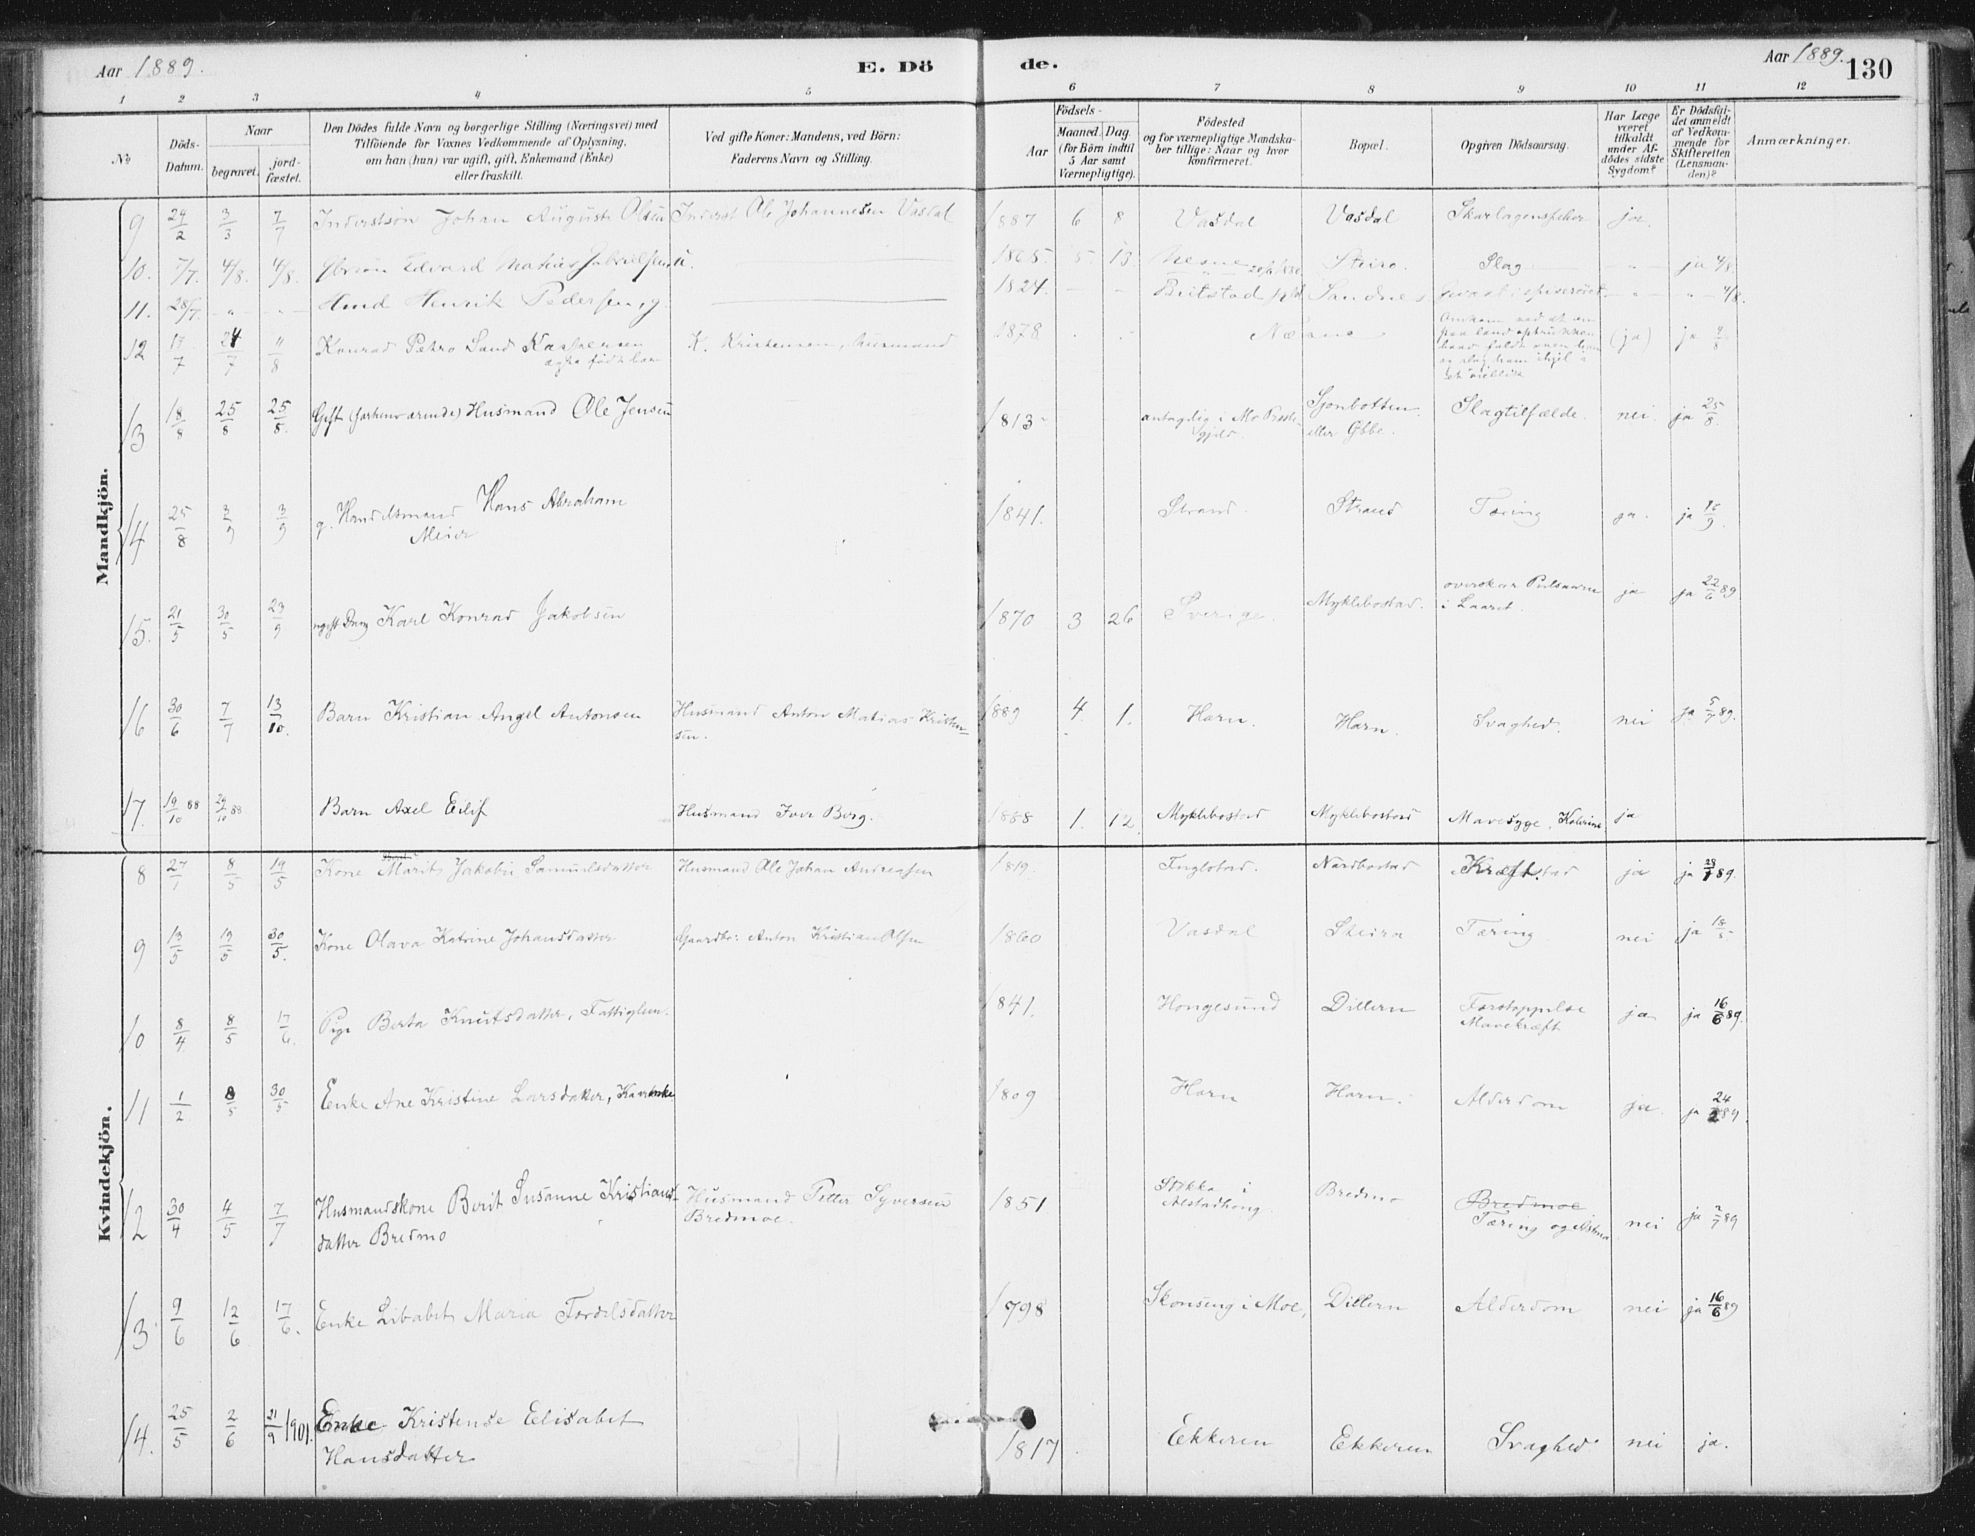 Aar 1889.
E. Dö
de.
Aar 1889.
130
1 2 3 4 5 6 7 8 9 10 11 12
No
Döds-Datum.
Naar
begravet.
jord-fæstet.
Den Dödes fulde Navn og borgerlige Stilling (Næringsvei) med
Tilföiende for Voxnes Vedkommende af Oplysning,
om han (hun) var ugift, gift, Enkemand (Enke)
eller fraskilt.
Ved gifte Koner: Mandens, ved Börn:
Faderens Navn og Stilling.
Födsels-
Aar
Maaned. Dag
(for Börn indtil
5 Aar samt
Værnepligtige).
Födested
og for værnepligtige Mandska-
ber tillige: Naar og hvor
konfirmeret.
Bopæl.
Opgiven Dödsaarsag.
Har Læge
været
tilkaldt
under Af-
dödes sidste
Sygdom?
Er Dödsfal-
det anmeldt
af Vedkom-
mende for
Skifteretten
(Lensman-
den)?
Anmærkninger.
Mandkjön.
9 24/2 3/3 7/7 Inderstsön Johan August Olsen Inderst Ole Johannesen Vasdal 1887 6 8 Vasdal Vasdal Skarlagensfeber ja.
10. 7/7. 4/8. 4/8. Edvard Mathias u. 1865. 5 13 Nesne Steiro. Slag ja 4/8.
11. 28/7. Hmd Henrik Pedersen, g 1824. Sandnes 4/8.
12 17/7 24/7 11/8 Konrad Petro Lund Kaspersen K. Kristensen, Husmand 1878 Næsne (ja) ja
ægte født barn
13 18/8 25/8 25/8. Gift (forhenværende) Husmand Ole Jensen 1813 antagelig i Mo Præste-gjeld. Sjonbotten. Slagtilfælde. nei. ja 25/8.
14 25/8 3/9 3/9 g. Handelsmand Hans Abraham 1841. Strand. Strand Tæring ja. ja 15/9.
Meier
15. 21/5 30/5 23/9 Karl Konrad Jakobsen 1870 3 26 Sverige. Myklebostad. overskar Pulsaaren ja ja 22/6 89
i Laaret.
16 30/6 7/7 13/10. Barn Kristian Angel Antonsen Husmand Anton Matias Kristen- 1889 4. 1. Harn. Harn. Svaghed. nei ja 5/7 89.
sen.
17. 19/10 88 24/10 88 Barn Axel Eilif Husmand Iver Berg. 1888 1. 12. Myklebostad Myklebostad Mavesyge, Kolerine ja
Kvindekjön.
8 27/1 8/5 19/5 Kone Marit Jakobie Samuelsdatter Husmand Ole Johan Andreassen 1819. Inglstad. Nordbostad Kræft. ja ja 28/1 89.
9 13/5 19/5 30/5. Kone Olava Katrine Johansdatter Gaardbr: Anton Kristian Olsen 1860 Vasdal Steira Tæring nei ja 18/5
10 8/4 8/5 17/6. Pige Berta Knutsdatter, Fattiglem. 1841. Hongesund Dillern Forstoppelse ja ja 16/6 89.
Mavekræft
11 1/2 8/5 30/5 Enke Ane Kristine Larsdatter, Kaarenke 1809 Harn Harn. Alderdom ja. ja 24/2 89.
12 30/4 4/5 7/7 Husmandskone Berit Susanne Kristians- Husmand Petter Syversen 1851 Stokka i Bredmo Bredmoe nei ja 2/7 89
datter Bredmo Bredmoe. Alstadhoug. Tæring og
13. 9/6 12/6 17/6. Enke Lisabet Maria Fordelsdatter 1798 Skonseng i Moe, Dillern Alderdom nei ja 16/6 89
14. 25/5 2/6 21/9 1901. Enke Kristense Elisabet 1817 Ekkeren Ekkeren Svaghed nei ja.
Hansdatter